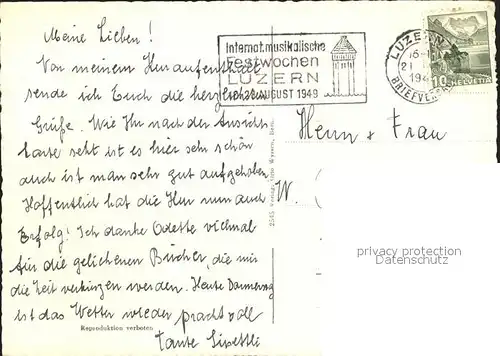 Meine Lieben!
Von meinem Kuraufenthalt
sende ich Euch die herzlichsten
Grüße. Wie Ihr nach der Ansichts-
karte seht ist es hier sehr schön
auch ist man sehr gut aufgehoben
Hoffentlich hat die Kur nun auch
Erfolg! Ich danke Odette vielmal
für die geliehenen Bücher, die mir
die Zeit verkürzen werden. Heute Donnerstag
ist das Wetter wieder prachtvoll
Tante
Reproduktion verboten
Internat. musikalische
Festwochen
LUZERN
AUGUST 1949
LUZERN
BRIEFVERS
10 HELVETIA
Herrn & Frau
W.
privacy protection
Datenschutz